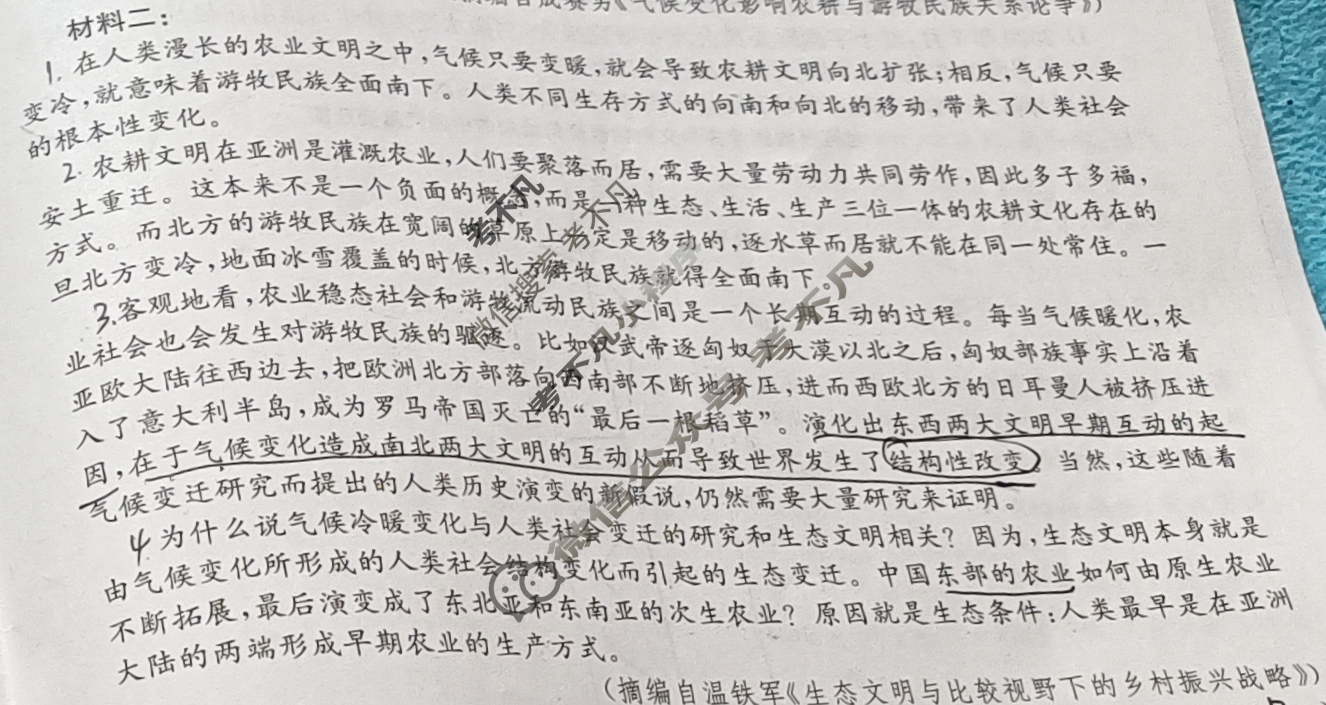 摘编自成赛男《气候变化影响农耕与游牧民族关系论争》）
材料二：
1.在人类漫长的农业文明之中，气候只要变暖，就会导致农耕文明向北扩张；相反，气候只要
变冷，就意味着游牧民族全面南下。人类不同生存方式的向南和向北的移动，带来了人类社会
的根本性变化。
2.农耕文明在亚洲是灌溉农业，人们要聚落而居，需要大量劳动力共同劳作，因此多子多福，
安土重迁。这本来不是一个负面的概念，而是一种生态、生活、生产三位一体的农耕文化存在的
方式。而北方的游牧民族在宽阔的草原上一定是移动的，逐水草而居就不能在同一处常住。一
旦北方变冷，地面冰雪覆盖的时候，北方游牧民族就得全面南下。
3.客观地看，农业稳态社会和游牧流动民族之间是一个长期互动的过程。每当气候暖化，农
业社会也会发生对游牧民族的驱逐。比如汉武帝逐匈奴于大漠以北之后，匈奴部族事实上沿着
亚欧大陆往西边去，把欧洲北方部落向西南部不断地挤压，进而西欧北方的日耳曼人被挤压进
入了意大利半岛，成为罗马帝国灭亡的“最后一根稻草”。演化出东西两大文明早期互动的起
因，在于气候变化造成南北两大文明的互动从而导致世界发生了结构性改变。当然，这些随着
气候变迁研究而提出的人类历史演变的新假说，仍然需要大量研究来证明。
4为什么说气候冷暖变化与人类社会变迁的研究和生态文明相关？因为，生态文明本身就是
由气候变化所形成的人类社会结构变化而引起的生态变迁。中国东部的农业如何由原生农业
不断拓展，最后演变成了东北亚和东南亚的次生农业？原因就是生态条件：人类最早是在亚洲
大陆的两端形成早期农业的生产方式。
（摘编自温铁军《生态文明与比较视野下的乡村振兴战略》）
考不凡
微信搜索 考不凡
考不凡小程序
微信公众号 考不凡